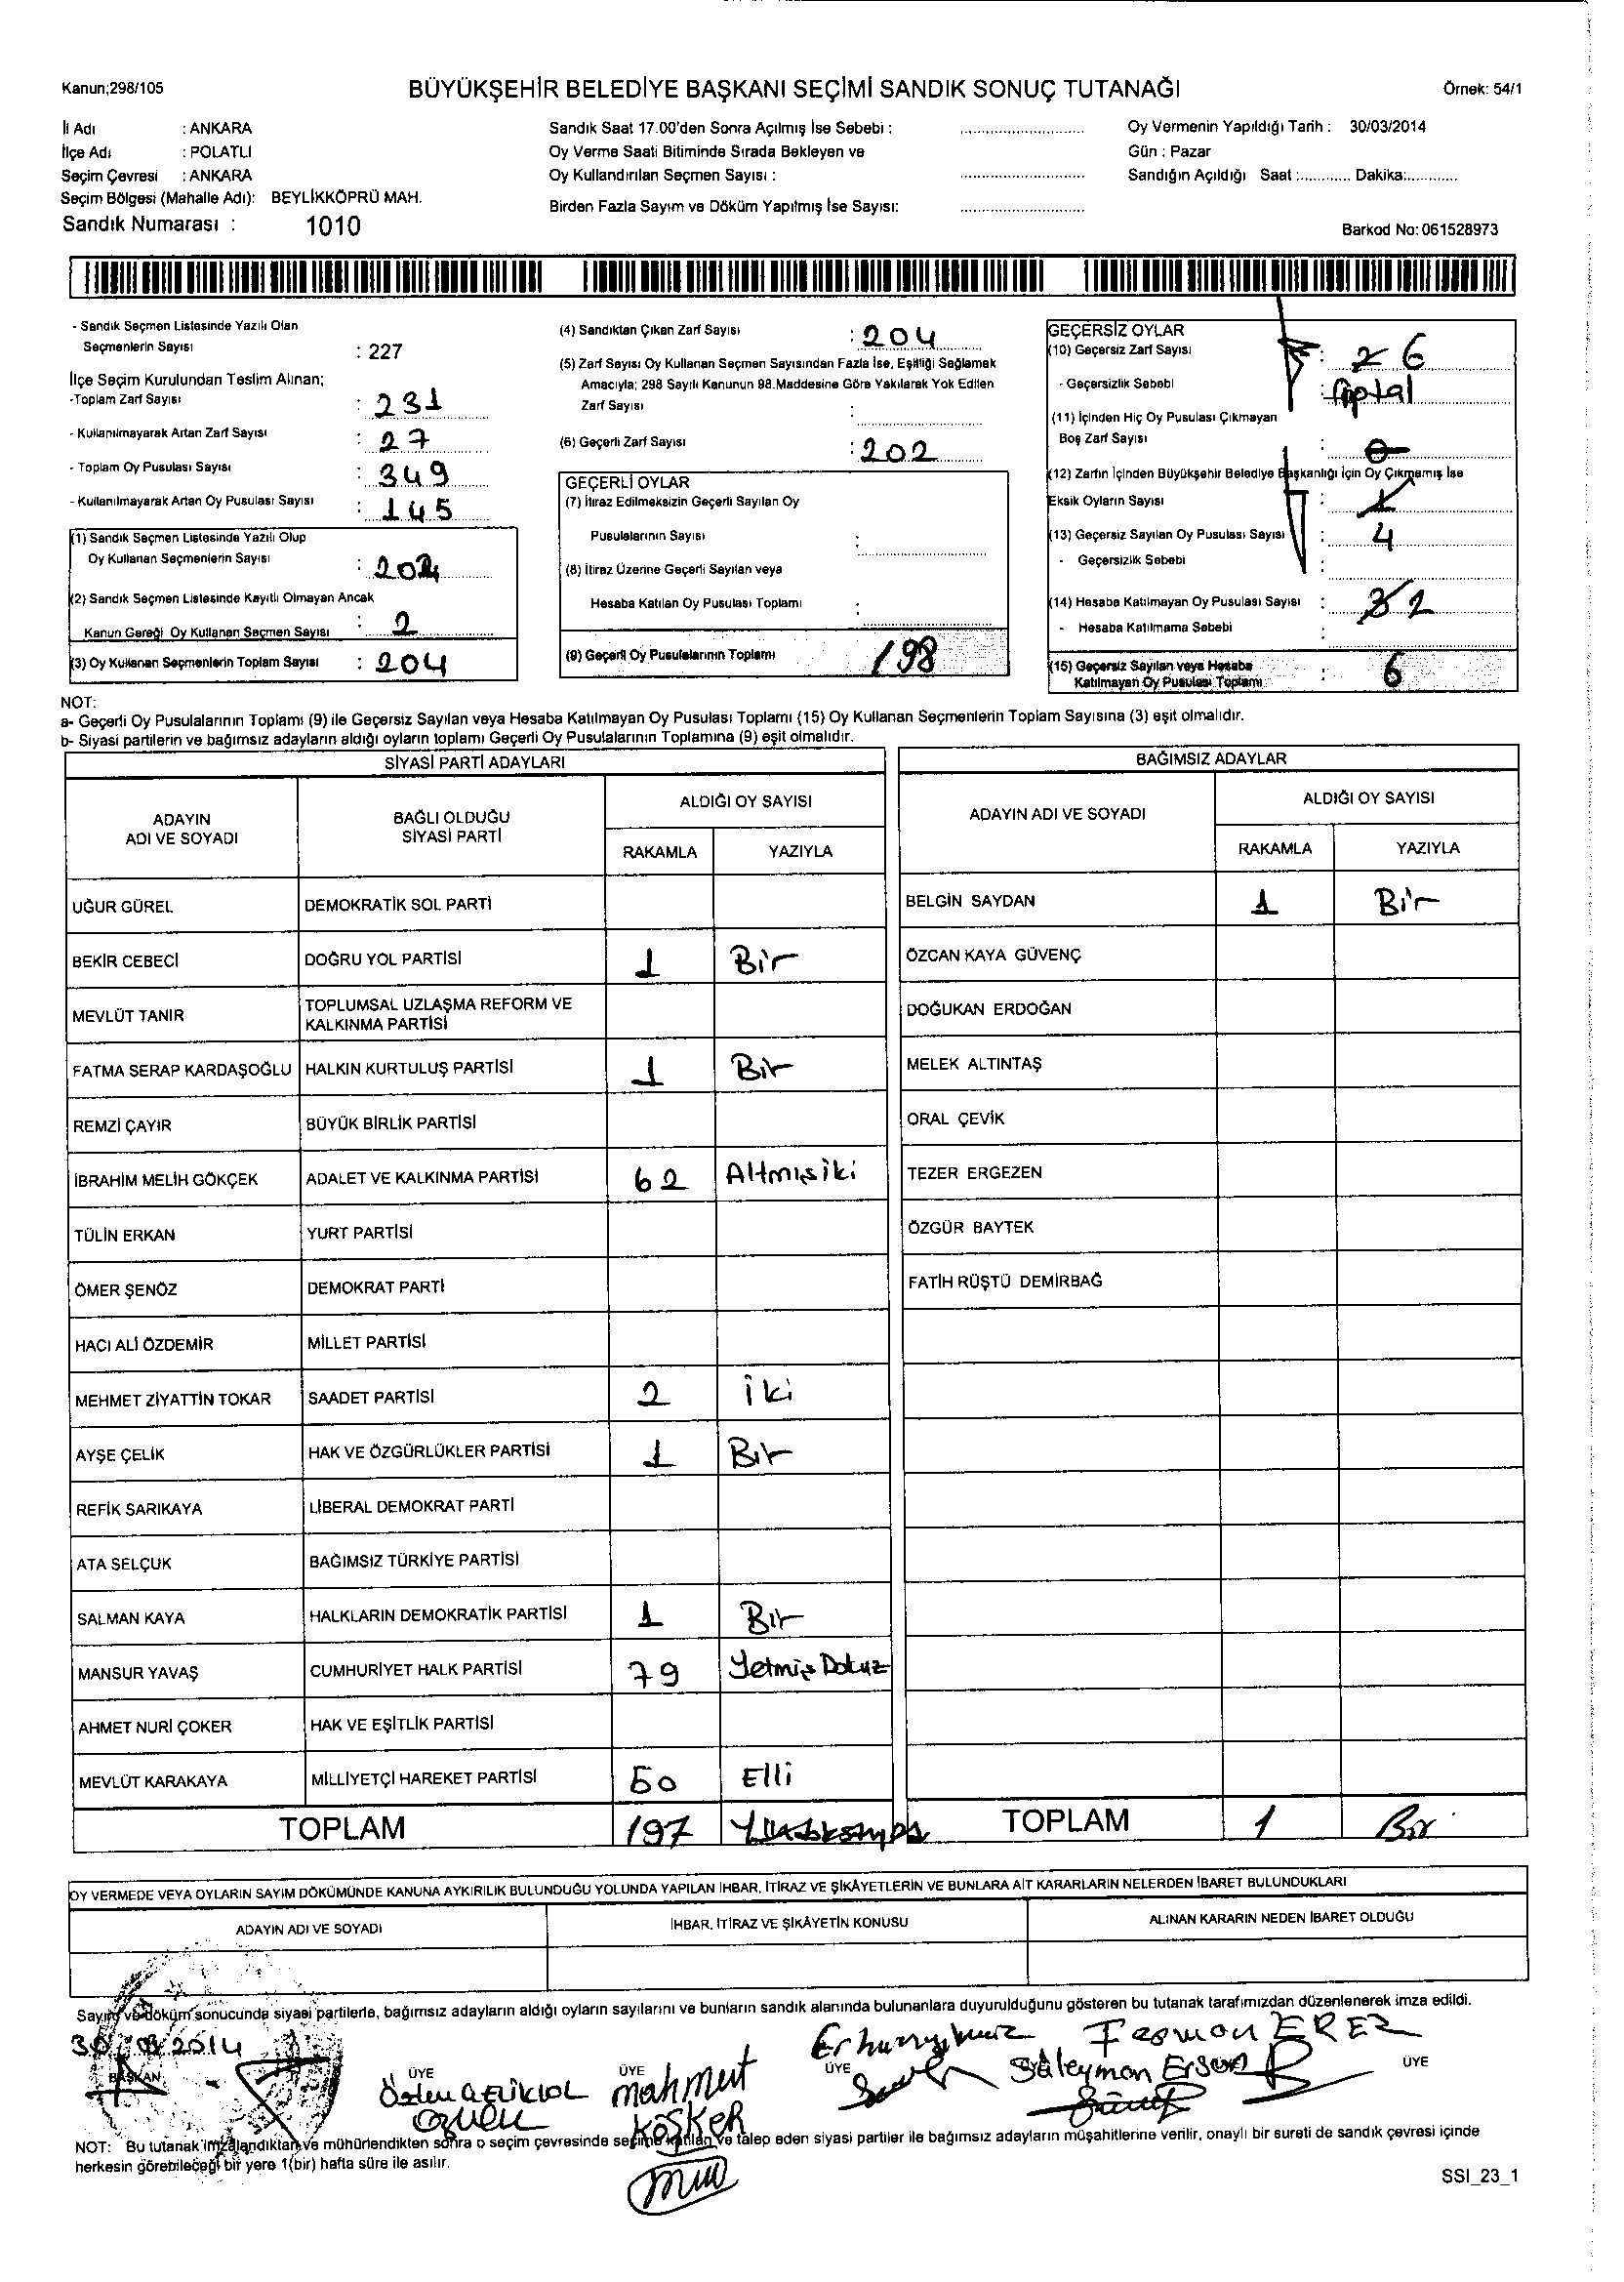 Kanun;298/105
BÜYÜKŞEHİR BELEDİYE BAŞKANI SEÇİMİ SANDIK SONUÇ TUTANAĞI
Örnek: 54/1
İl Adı : ANKARA
İlçe Adı : POLATLI
Seçim Çevresi : ANKARA
Seçim Bölgesi (Mahalle Adı): BEYLİKKÖPRÜ MAH.
Sandık Numarası : 1010
Sandık Saat 17.00'den Sonra Açılmış İse Sebebi :
Oy Verme Saati Bitiminde Sırada Bekleyen ve
Oy Kullandırılan Seçmen Sayısı :
Birden Fazla Sayım ve Döküm Yapılmış İse Sayısı:
Oy Vermenin Yapıldığı Tarih : 30/03/2014
Gün : Pazar
Sandığın Açıldığı Saat :............ Dakika:............
Barkod No: 061528973
- Sandık Seçmen Listesinde Yazılı Olan
Seçmenlerin Sayısı : 227
İlçe Seçim Kurulundan Teslim Alınan;
-Toplam Zarf Sayısı : 231
- Kullanılmayarak Artan Zarf Sayısı : 27
- Toplam Oy Pusulası Sayısı : 349
- Kullanılmayarak Artan Oy Pusulası Sayısı : 145
(1) Sandık Seçmen Listesinde Yazılı Olup
Oy Kullanan Seçmenlerin Sayısı :
(2) Sandık Seçmen Listesinde Kayıtlı Olmayan Ancak
Kanun Gereği Oy Kullanan Seçmen Sayısı : 2
(3) Oy Kullanan Seçmenlerin Toplam Sayısı : 204
(4) Sandıktan Çıkan Zarf Sayısı : 204
(5) Zarf Sayısı Oy Kullanan Seçmen Sayısından Fazla İse, Eşitliği Sağlamak
Amacıyla; 298 Sayılı Kanunun 98.Maddesine Göre Yakılarak Yok Edilen
Zarf Sayısı :
(6) Geçerli Zarf Sayısı : 202
GEÇERLİ OYLAR
(7) İtiraz Edilmeksizin Geçerli Sayılan Oy
Pusulalarının Sayısı :
(8) İtiraz Üzerine Geçerli Sayılan veya
Hesaba Katılan Oy Pusulası Toplamı :
(9) Geçerli Oy Pusulalarının Toplamı 198
GEÇERSİZ OYLAR
(10) Geçersiz Zarf Sayısı : 2 6
- Geçersizlik Sebebi : iptal
(11) İçinden Hiç Oy Pusulası Çıkmayan
Boş Zarf Sayısı : 0
(12) Zarfın İçinden Büyükşehir Belediye Başkanlığı İçin Oy Çıkmamış İse
Eksik Oyların Sayısı : 1
(13) Geçersiz Sayılan Oy Pusulası Sayısı : 4
- Geçersizlik Sebebi :
(14) Hesaba Katılmayan Oy Pusulası Sayısı : 3 2
- Hesaba Katılmama Sebebi :
(15) Geçersiz Sayılan veya Hesaba
Katılmayan Oy Pusulası Toplamı : 6
NOT:
a- Geçerli Oy Pusulalarının Toplamı (9) ile Geçersiz Sayılan veya Hesaba Katılmayan Oy Pusulası Toplamı (15) Oy Kullanan Seçmenlerin Toplam Sayısına (3) eşit olmalıdır.
b- Siyasi partilerin ve bağımsız adayların aldığı oyların toplamı Geçerli Oy Pusulalarının Toplamına (9) eşit olmalıdır.
SİYASİ PARTİ ADAYLARI
ADAYIN ADI VE SOYADI
BAĞLI OLDUĞU SİYASİ PARTİ
ALDIĞI OY SAYISI
RAKAMLA YAZIYLA
UĞUR GÜREL DEMOKRATİK SOL PARTİ
BEKİR CEBECİ DOĞRU YOL PARTİSİ 1 Bir
MEVLÜT TANIR TOPLUMSAL UZLAŞMA REFORM VE
KALKINMA PARTİSİ
FATMA SERAP KARDAŞOĞLU HALKIN KURTULUŞ PARTİSİ 1 Bir
REMZİ ÇAYIR BÜYÜK BİRLİK PARTİSİ
İBRAHİM MELİH GÖKÇEK ADALET VE KALKINMA PARTİSİ 62 Altmışiki
TÜLİN ERKAN YURT PARTİSİ
ÖMER ŞENÖZ DEMOKRAT PARTİ
HACI ALİ ÖZDEMİR MİLLET PARTİSİ
MEHMET ZİYATTİN TOKAR SAADET PARTİSİ 2 iki
AYŞE ÇELİK HAK VE ÖZGÜRLÜKLER PARTİSİ 1 Bir
REFİK SARIKAYA LİBERAL DEMOKRAT PARTİ
ATA SELÇUK BAĞIMSIZ TÜRKİYE PARTİSİ
SALMAN KAYA HALKLARIN DEMOKRATİK PARTİSİ 1 Bir
MANSUR YAVAŞ CUMHURİYET HALK PARTİSİ 79 Yetmiş Dokuz
AHMET NURİ ÇOKER HAK VE EŞİTLİK PARTİSİ
MEVLÜT KARAKAYA MİLLİYETÇİ HAREKET PARTİSİ 50 Elli
TOPLAM 197
BAĞIMSIZ ADAYLAR
ADAYIN ADI VE SOYADI
ALDIĞI OY SAYISI
RAKAMLA YAZIYLA
BELGİN SAYDAN 1 Bir
ÖZCAN KAYA GÜVENÇ
DOĞUKAN ERDOĞAN
MELEK ALTINTAŞ
ORAL ÇEVİK
TEZER ERGEZEN
ÖZGÜR BAYTEK
FATİH RÜŞTÜ DEMİRBAĞ
TOPLAM 1 Bir
OY VERMEDE VEYA OYLARIN SAYIM DÖKÜMÜNDE KANUNA AYKIRILIK BULUNDUĞU YOLUNDA YAPILAN İHBAR, İTİRAZ VE ŞİKÂYETLERİN VE BUNLARA AİT KARARLARIN NELERDEN İBARET BULUNDUKLARI
ADAYIN ADI VE SOYADI İHBAR, İTİRAZ VE ŞİKÂYETİN KONUSU ALINAN KARARIN NEDEN İBARET OLDUĞU
Sayım ve döküm sonucunda siyasi partilerle, bağımsız adayların aldığı oyların sayılarını ve bunların sandık alanında bulunanlara duyurulduğunu gösteren bu tutanak tarafımızdan düzenlenerek imza edildi.
30/03/2014
BAŞKAN ÜYE ÜYE ÜYE ÜYE
mahmut
KÖŞKER
Süleyman
EREZ
NOT: Bu tutanak imzalandıktan ve mühürlendikten sonra o seçim çevresinde seçime katılan ve talep eden siyasi partiler ile bağımsız adayların müşahitlerine verilir, onaylı bir sureti de sandık çevresi içinde
herkesin görebileceği bir yere 1(bir) hafta süre ile asılır.
SSI_23_1